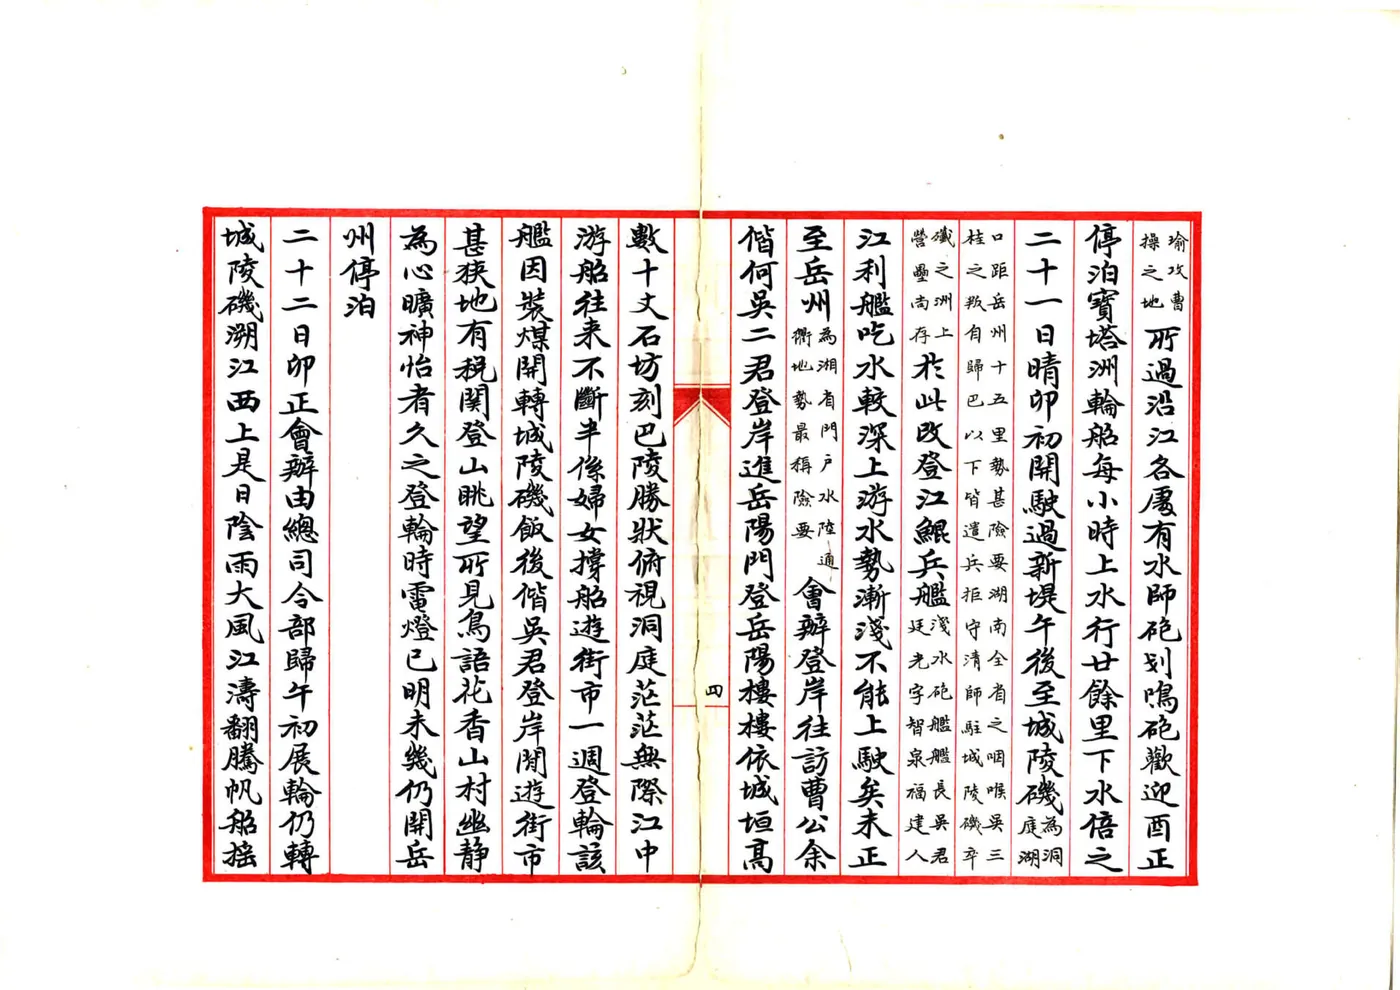 瑜攻曹
操之地
所過沿江各處有水師砲划鳴砲歡迎酉正
停泊寶塔洲輪船每小時上水行廿餘里下水倍之
二十一日晴卯初開駛過新堤午後至城陵磯
為洞
庭湖
口距岳州十五里勢甚險要湖南全省之咽喉吳三
桂之叛自歸巴以下皆遣兵拒守清師駐城陵磯卒
殲之洲上
營壘尚存
於此改登江鯤兵艦
淺水砲艦艦長吳君
廷光字智泉福建人
江利艦吃水較深上游水勢漸淺不能上駛矣未正
至岳州
為湘省門戶水陸通
衢地勢最稱險要
會辦登岸往訪曹公余
偕何吳二君登岸進岳陽門登岳陽樓樓依城垣高
四
數十丈石坊刻巴陵勝狀俯視洞庭茫茫無際江中
游船往来不斷半係婦女撐船遊街市一週登輪該
艦因裝煤開轉城陵磯飯後偕吳君登岸閒遊街市
甚狹地有稅関登山眺望所見鳥語花香山村幽静
為心曠神怡者久之登輪時雷燈已明未幾仍開岳
州停泊
二十二日卯正會辦由總司令部歸午初展輪仍轉
城陵磯溯江西上是日陰雨大風江濤翻騰帆船搖